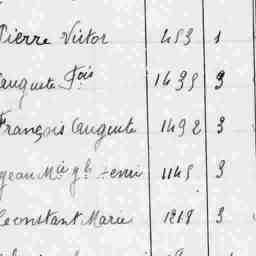 Pierre Victor 453 1
auguste Fois 1435 3
François auguste 1492 3
geau Mie gle 1145 3
constant Marie 1218 3